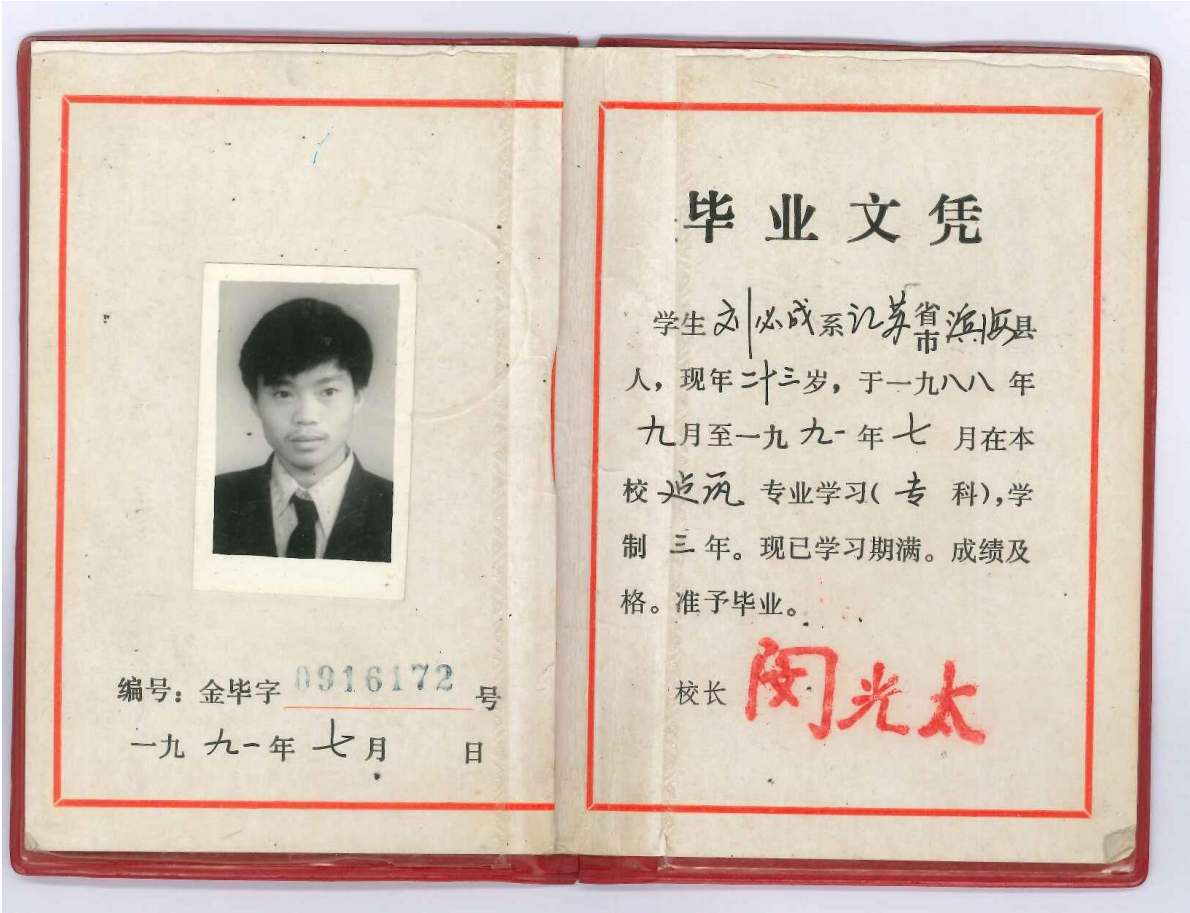 编号：金毕字0916172号
一九九一年七月 日
毕业文凭
学生刘必成系江苏省市滨海县
人，现年二十三岁，于一九八八年
九月至一九九一年七月在本
校建筑专业学习（专科），学
制三年。现已学习期满。成绩及
格。准予毕业。
校长 闵光太